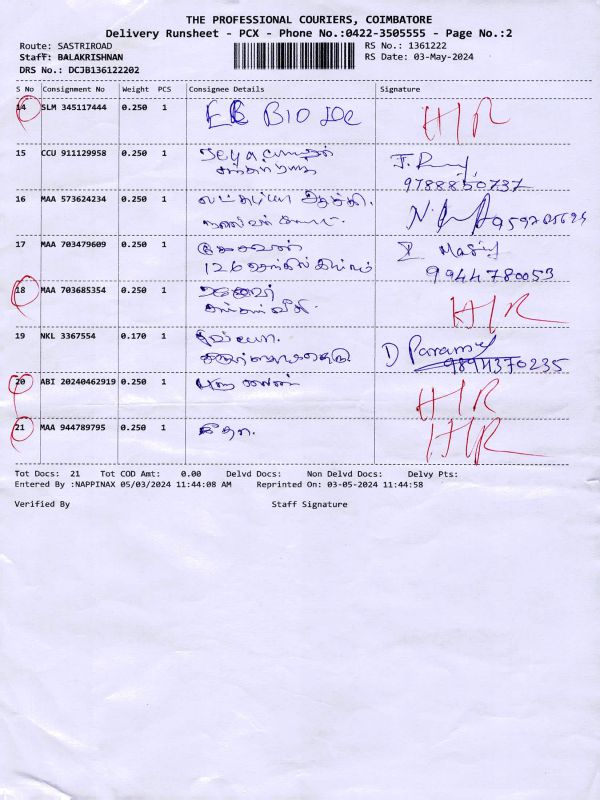 THE PROFESSIONAL COURIERS, COIMBATORE
Delivery Runsheet - PCX - Phone No.:0422-3505555 - Page No.:2
Route: SASTRIROAD RS No.: 1361222
Staff: BALAKRISHNAN RS Date: 03-May-2024
DRS No.: DCJB136122202
S No Consignment No Weight PCS Consignee Details Signature
14 SLM 345117444 0.250 1 BIO H/R
15 CCU 911129958 0.250 1
9788850737
16 MAA 573624234 0.250 1
17 MAA 703479609 0.250 1
126 9944780053
18 MAA 703685354 0.250 1 H/R
19 NKL 3367554 0.170 1
9894370235
20 ABI 20240462919 0.250 1 H/R
21 MAA 944789795 0.250 1 H/R
Tot Docs: 21 Tot COD Amt: 0.00 Delvd Docs: Non Delvd Docs: Delvy Pts:
Entered By :NAPPINAX 05/03/2024 11:44:08 AM Reprinted On: 03-05-2024 11:44:58
Verified By Staff Signature